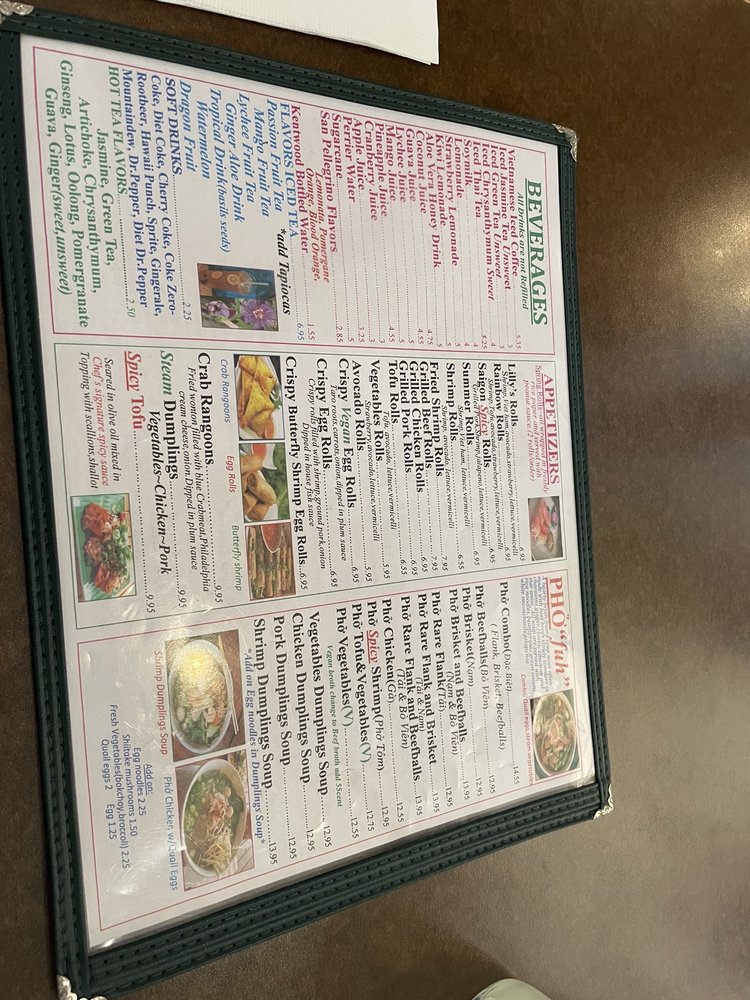 BEVERAGES
All Drinks are not Refilled
Vietnamese Iced Coffee 5.35
Iced Jasmine Tea Unsweet 3
Iced Green Tea Unsweet 4
Iced Chrysanthymum Sweet 5.25
Iced Thai Tea 4
Soymilk 4
Lemonade 5
Strawberry Lemonade
Kiwi Lemonade 5
Aloe Vera Honey Drink 4.75
Coconut Juice 4.55
Guava Juice
Lychee Juice
Mango Juice 4.55
Pineapple Juice
Cranberry Juice
Apple Juice 3.25
Perrier Water
Sugarcane
San Pellegrino Flavors 2.85
Lemonata, Pomergrane
Orange, Blood Orange,
Kentwood Bottled Water 1.55
FLAVORS ICED TEA 6.95
*add Tapiocas
Passion Fruit Tea
Mango Fruit Tea
Lychee Fruit Tea
Ginger Aloe Drink
Tropical Drink(basils seeds)
Watermelon
Dragon Fruit
SOFT DRINKS 2.25
Coke, Diet Coke, Cherry Coke, Coke Zero-
Rootbeer, Hawaii Punch, Sprite, Gingerale,
Mountaindew, Dr.Pepper, Diet Dr.Pepper
HOT TEA FLAVORS 2.50
Jasmine, Green Tea,
Artichoke, Chrysanthymum,
Ginseng, Lotus, Oolong, Pomergranate
Guava, Ginger(sweet,unsweet)
APPETIZERS
Spring Rolls-all wrapped in freshly
rice paper served with
peanut sauce,(2 rolls/order)
Lily's Rolls 6.95
Shrimp,Viet ham,avocado,strawberry,letuce,vermicelli
Rainbow Rolls 6.95
Shrimp,Tofu,avocado,strawberry,letuce,vermicelli
Saigon Spicy Rolls 6.95
Grilled Pork,Shrimp,jalapeno,letuce,vermicelli
Summer Rolls 6.95
Shrimp,Viet ham, letuce,vermicelli
Shrimp Rolls 6.55
Shrimp, avocado, letuce,vermicelli
Fried Shrimp Rolls 7.95
Grilled Beef Rolls 7.95
Grilled Chicken Rolls 6.95
Grilled Pork Rolls 6.95
Tofu Rolls 6.55
Tofu, avocado, letuce,vermicelli
Vegetables Rolls 5.95
Strawberry,avocado,letuce,vermicelli
Avocado Rolls 5.95
Crispy Vegan Egg Rolls 6.95
Taro roots,carrots,onion,dipped in plum sauce
Crispy Egg Rolls 6.95
Crispy rolls filled with shrimp,ground pork,onion
Dipped in house fish sauce
Crispy Butterfly Shrimp Egg Rolls 6.95
Crab Rangoons
Egg Rolls
Butterfly shrimp
Crab Rangoons 9.95
Fried wonton filled with blue Crabmeat,Philadelphia
cream cheese,onion.Dipped in plum sauce
Steam Dumplings 9.95
Vegetables~Chicken~Pork
Spicy Tofu 9.95
Seared in olive oil mixed in
Chef's signature spicy sauce
Topping with scallions,shallot
PHỞ"fuh"
Combo, Quail eggs, steam vegetable
Phở Combo(Đặc Biệt) 14.45
( Flank, Brisket, Beefballs)
Phở Beefballs(Bò Viên) 12.95
Phở Brisket(Nạm) 12.95
Phở Brisket and Beefballs 13.95
(Nạm & Bò Viên)
Phở Rare Flank(Tái) 12.95
Phở Rare Flank and Brisket 13.95
(Tái & Nạm)
Phở Rare Flank and Beefballs 13.95
(Tái & Bò Viên)
Phở Chicken(Gà) 12.55
Phở Spicy Shrimp(Phở Tôm) 12.95
Phở Tofu&Vegetables(V) 12.75
Phở Vegetables(V) 12.55
Vegan broth change to Beef broth add 55cent
Vegetables Dumplings Soup 12.95
Chicken Dumplings Soup 12.95
Pork Dumplings Soup 12.95
Shrimp Dumplings Soup 13.95
*Add on Egg noodles in Dumplings Soup*
Shrimp Dumplings Soup
Phở Chicken w/Quail Eggs
Add on:
Egg noodles 2.25
Shiitake mushrooms 1.50
Fresh Vegetables(bokchoy,broccoli) 2.25
Quail eggs 2 Egg 1.25